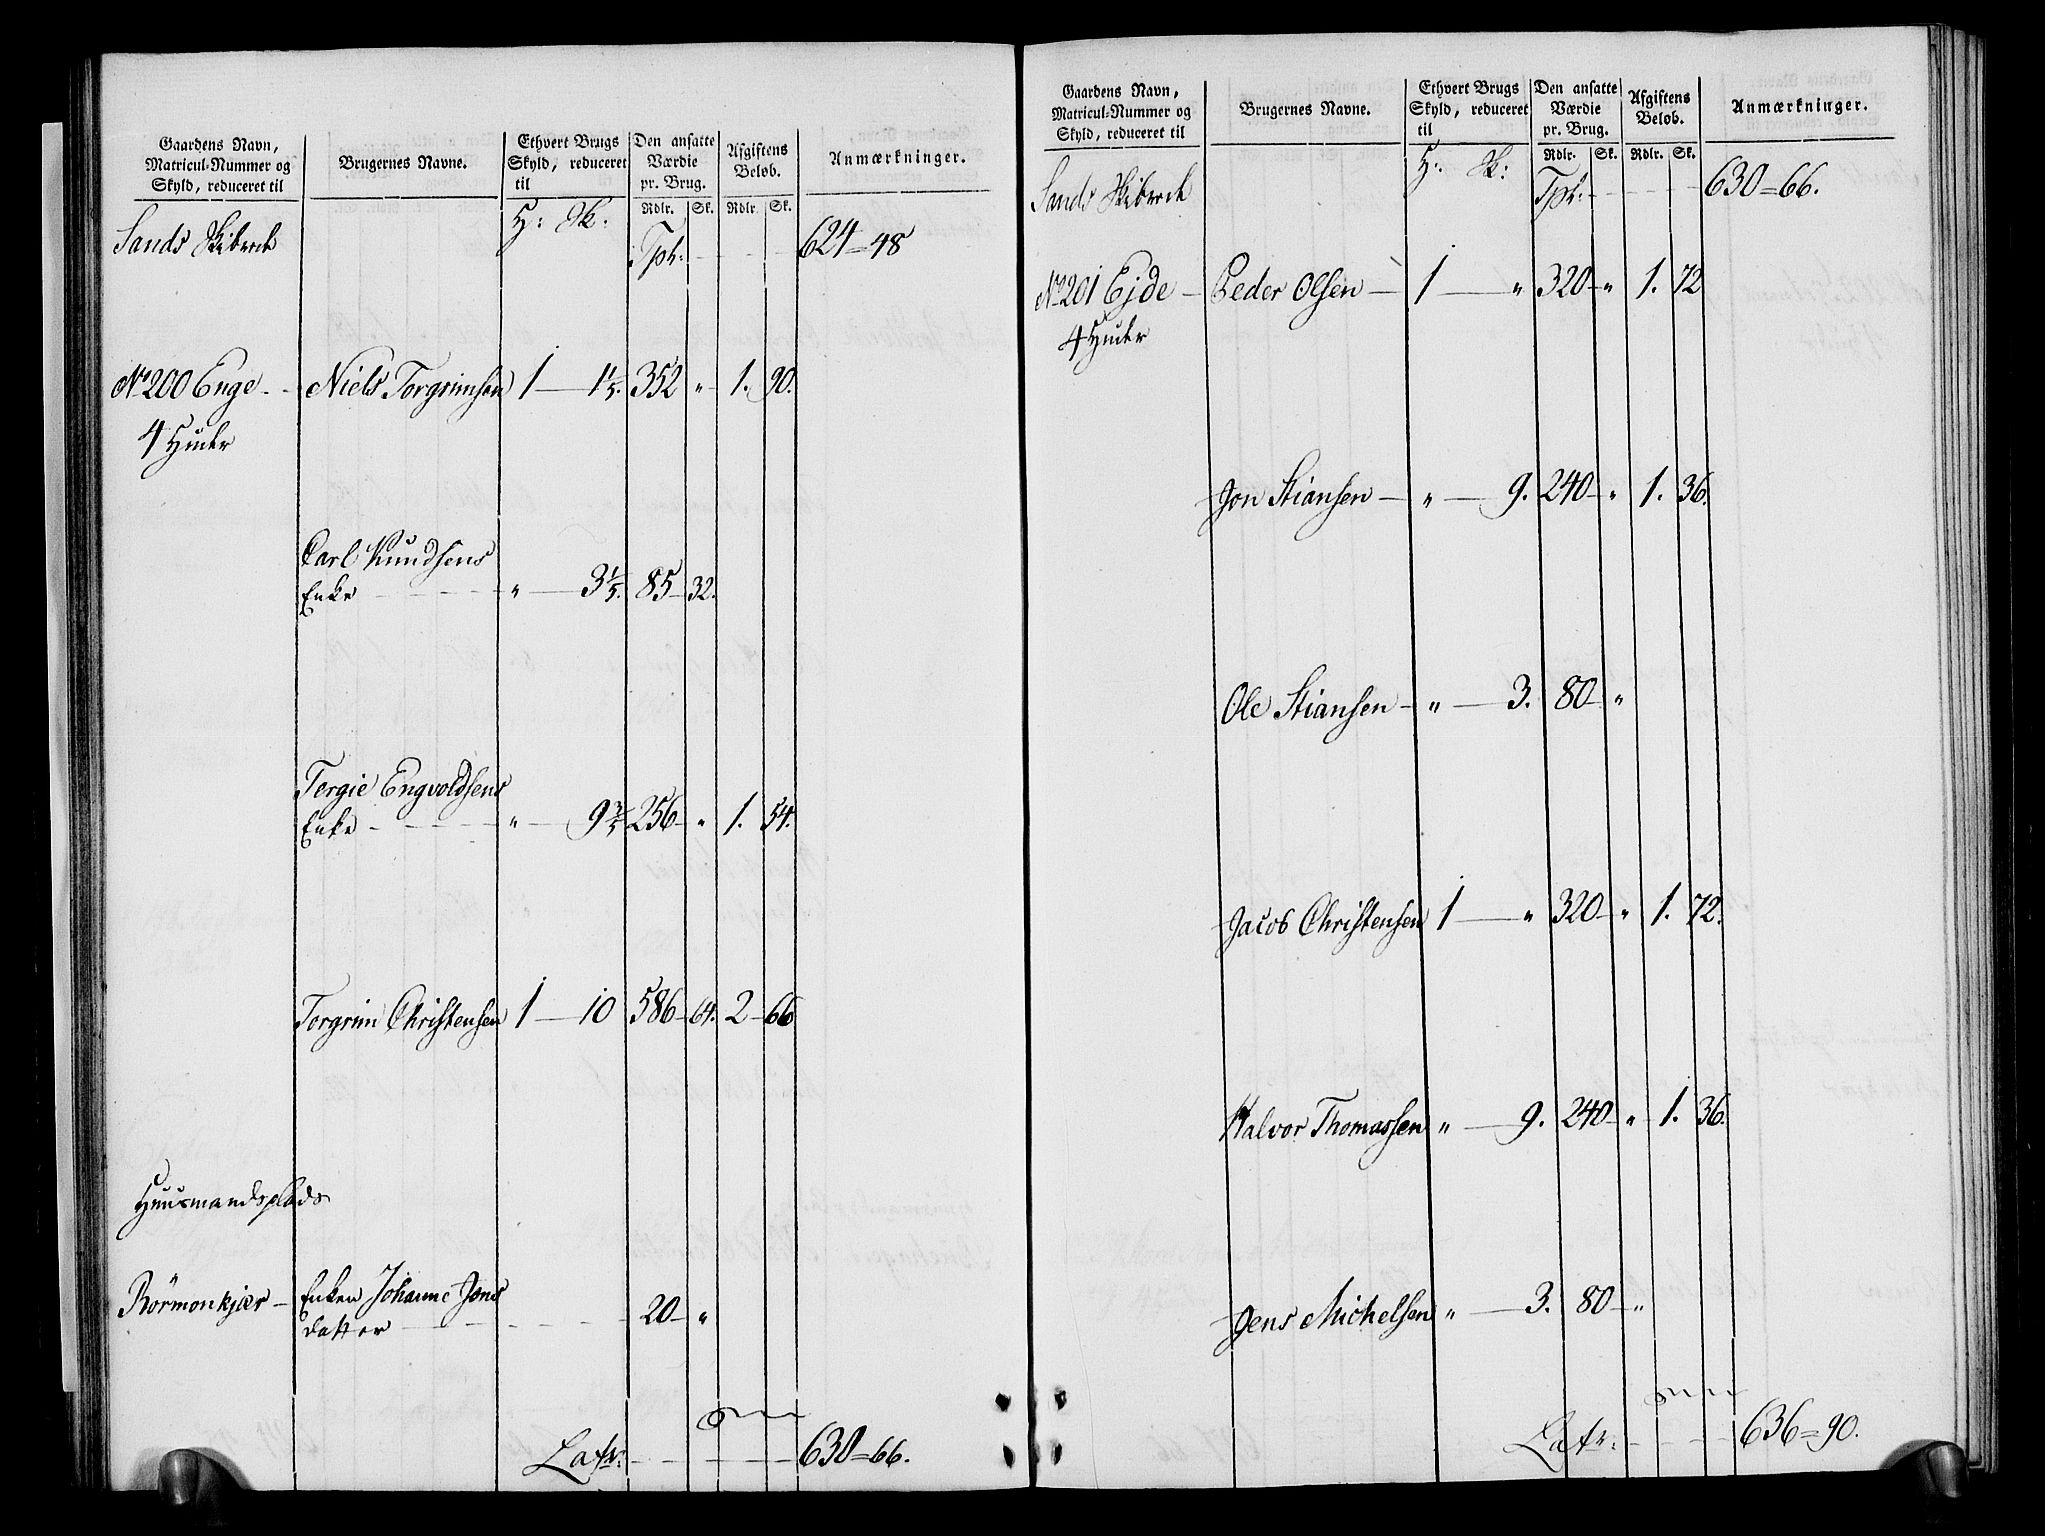 Gaardens Navn,
Matricul-Nummer og
Skyld, reduceret til
Brugernes Navne.
Ethvert Brugs
Skyld, reduceret
til
Den ansatte
Værdie
pr. Brug.
Rdlr. Sk.
Afgiftens
Beløb.
Rdlr. Sk.
Anmærkninger.
H: Sk:
Sands Skibrede
Tpt: - - - 624=48
No 200 Enge - - Niels Torgrimsen 1 — 1 1/5. 352 " 1. 90.
4 Huder
Carl Knudsens
Enke - - - - " — 3 1/5. 85 - 32.
Tergie Engvoldsens
Enke - - - - " — 9 3/5 256 - " 1. 54.
Torgrim Christensen 1 — 10 586 - 64. 2 - 66
Huusmandsplads
Rörmonkjær - Enken Johanne Jons
datter - - - - - 20 - "
Latr: - - - - 630=66.
Gaardens Navn,
Matricul-Nummer og
Skyld, reduceret til
Brugernes Navne.
Ethvert Brugs
Skyld, reduceret
til
Den ansatte
Værdie
pr. Brug.
Rdlr. Sk.
Afgiftens
Beløb.
Rdlr. Sk.
Anmærkninger.
H: Sk:
Sands Skibrede
Tpt: - - - - 630=66.
No 201 Ejde - Peder Olsen — 1 — " 320 - " 1. 72
4 Huder
Jon Stiansen — " — 9. 240 - " 1. 36.
Ole Stiansen - " — 3. 80 - "
Jacob Christensen 1 — " 320 - " 1. 72.
Halvor Thomassen " — 9. 240 - " 1. 36.
Jens Michelsen " — 3. 80 - "
Latr: - - - - 636=90.